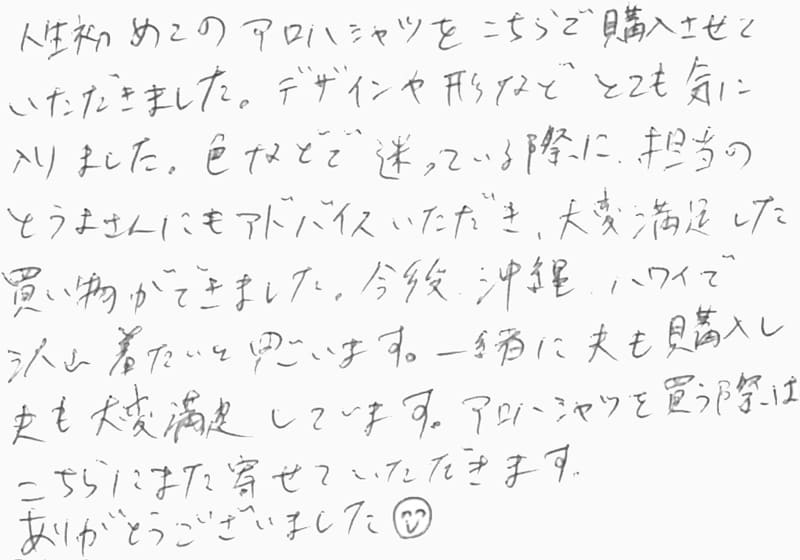 人生初めてのアロハシャツをこちらで購入させて
いただきました。デザインや形などとても気に
入りました。色などで迷っている際に、担当の
とうまさんにもアドバイスいただき、大変満足した
買い物ができました。今後、沖縄、ハワイで
沢山着たいと思います。一緒に夫も購入し
夫も大変満足しています。アロハシャツを買う際は
こちらにまた寄せていただきます。
ありがとうございました